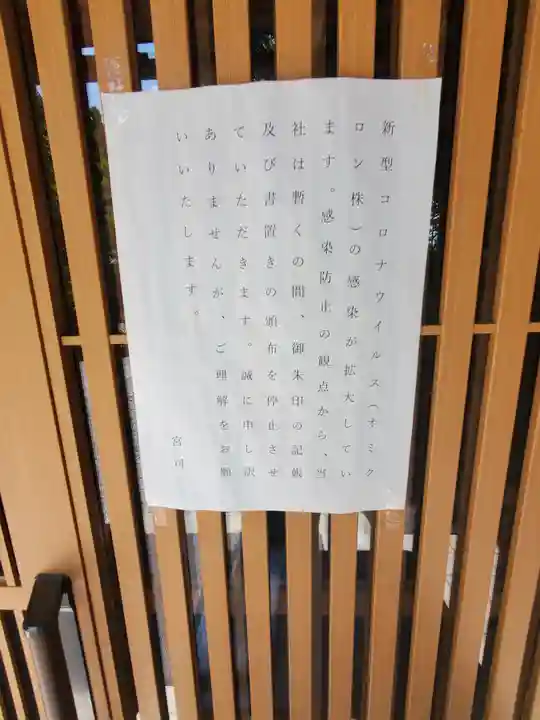 新型コロナウイルス(オミク
ロン株)の感染が拡大してい
ます。感染防止の観点から、当
社は暫くの間、御朱印の記帳
及び書置きの頒布を停止させ
ていただきます。誠に申し訳
ありませんが、ご理解をお願
いいたします。
宮司